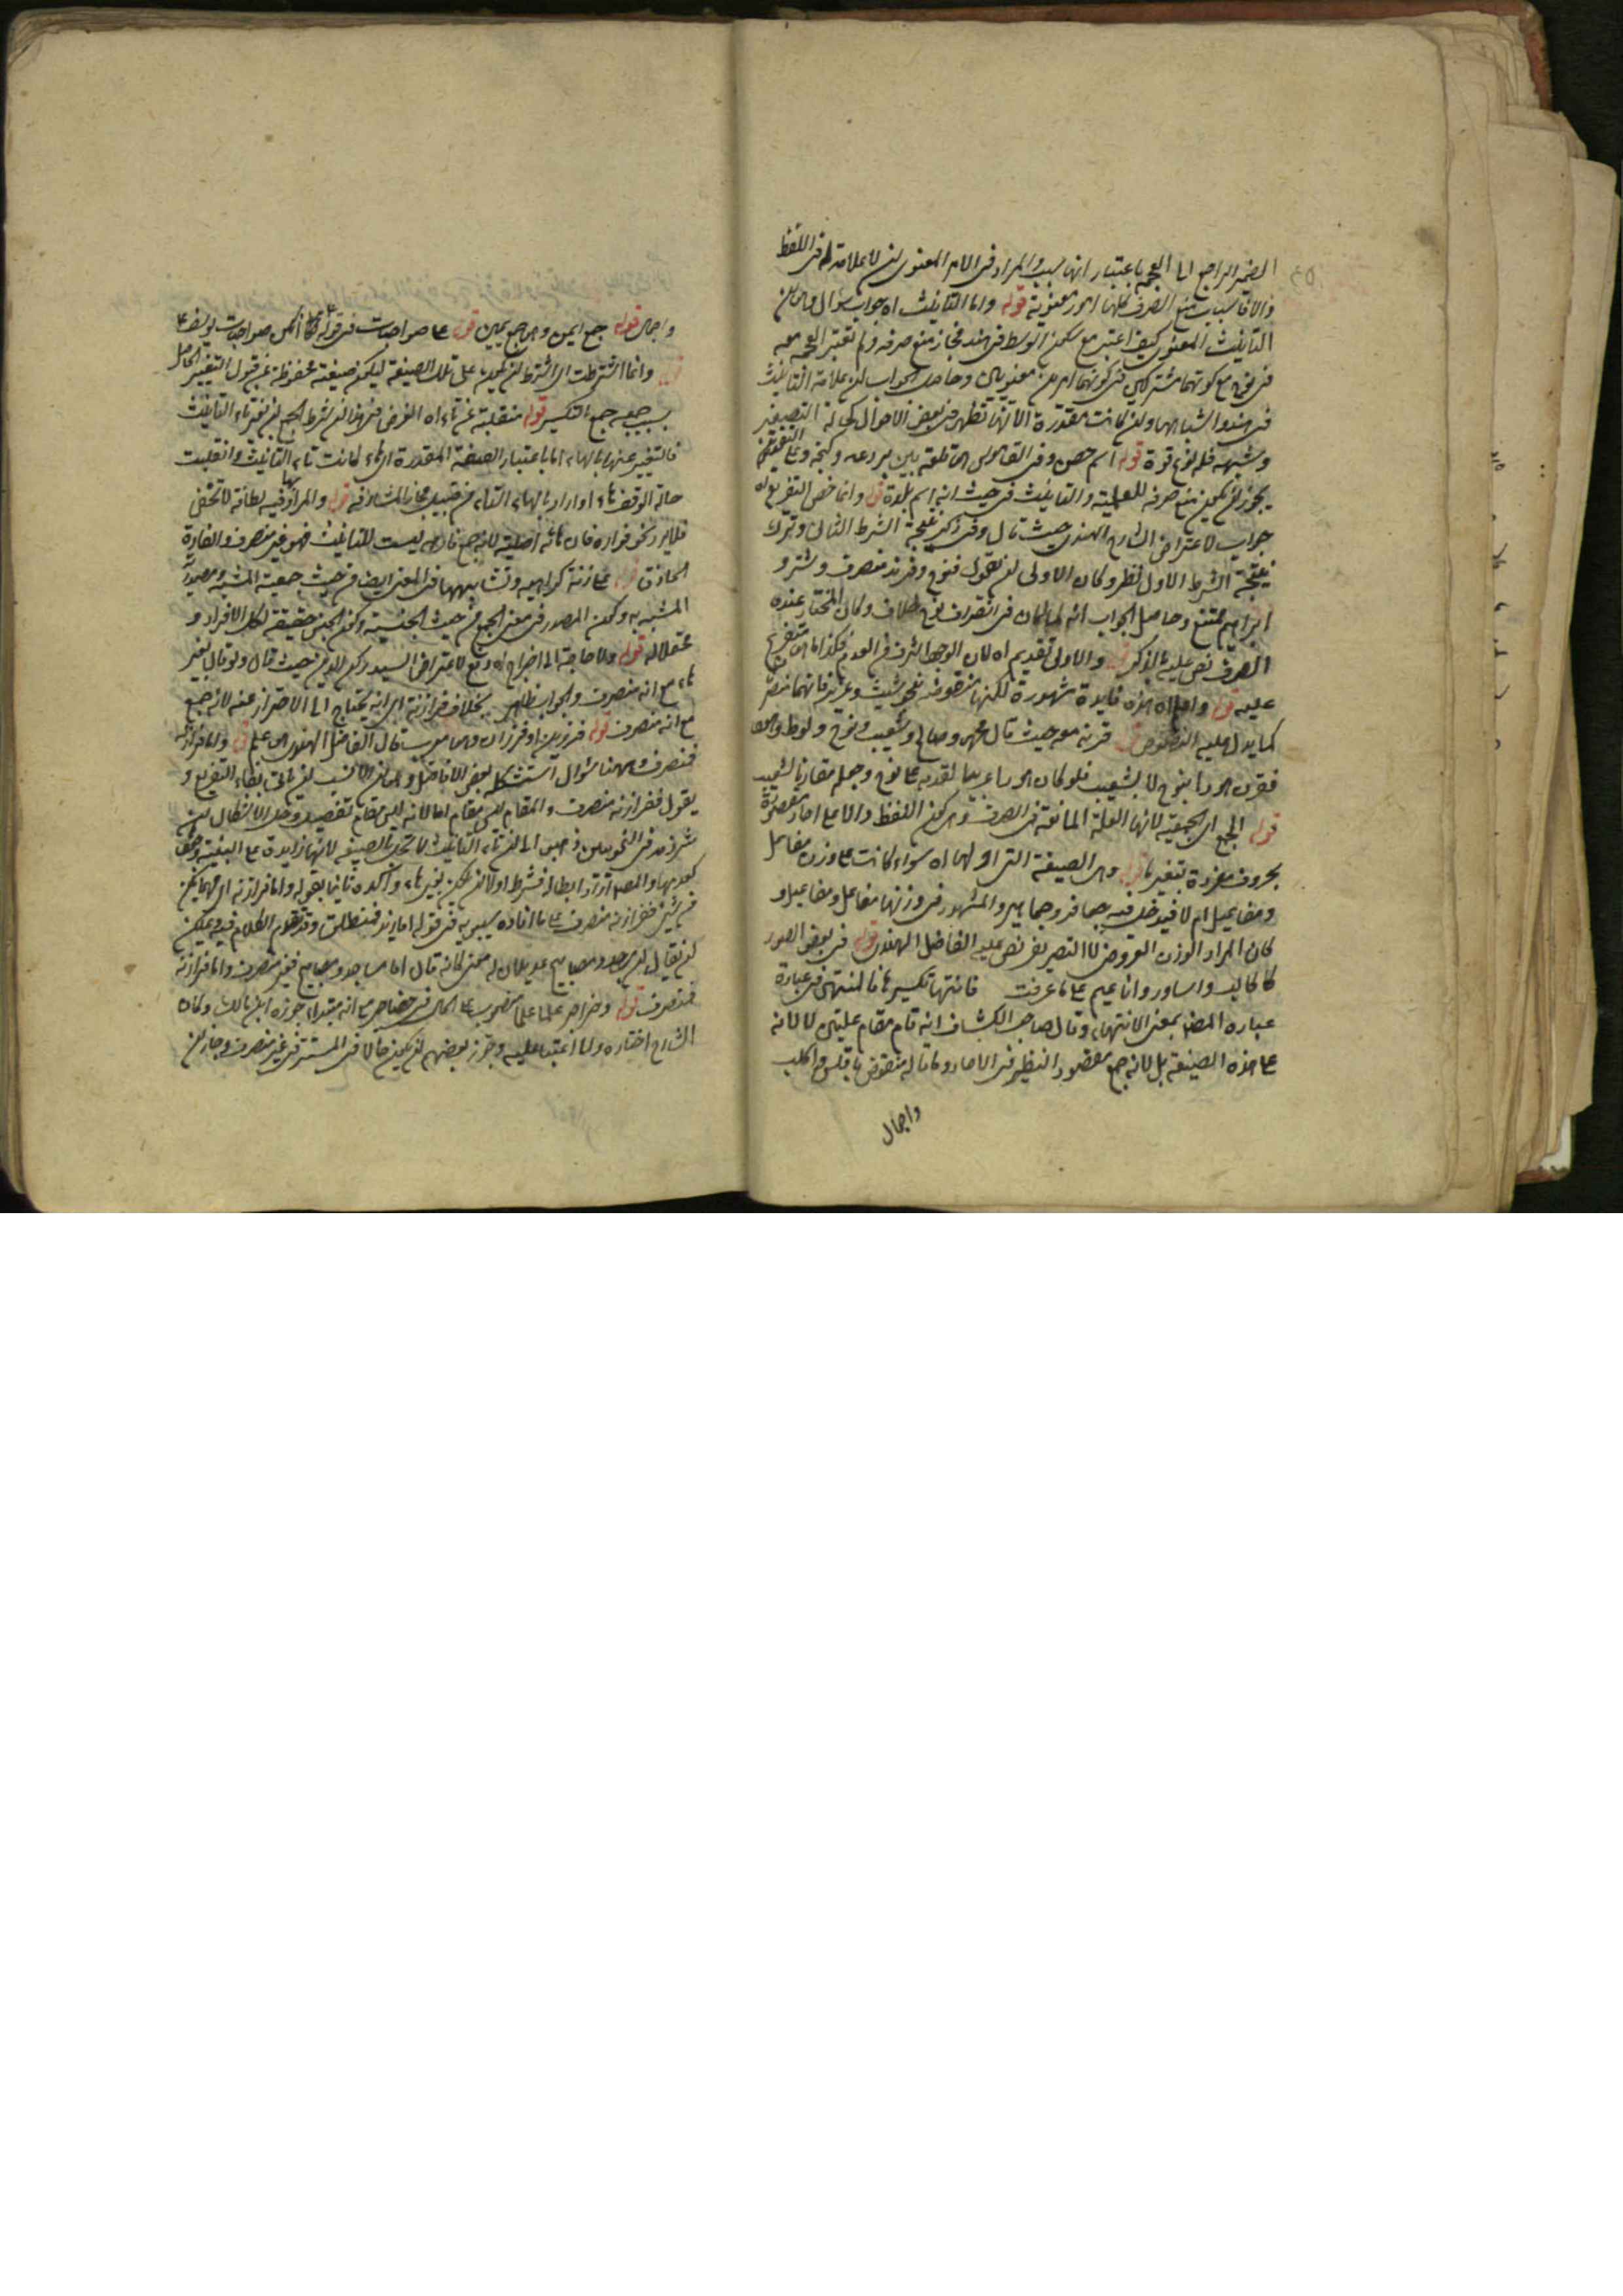 الضمير الراجع الى العجمة باعتبار انها سبب والمراد في الامر المعنوى ان لا علامة له في اللفظ
والا فاسباب منع الصرف كلها امور معنوية قوله واما التأنيث اه جواب سؤال وهو ان
التأنيث المعنوى كيف اعتبر مع سكون الوسط في هند فجاز منع صرفه ولم تعتبر العجمة معه
في نوح مع كونهما مشتركين في كونهما امرين معنويين وحاصل الجواب ان علامة التأنيث
في هند واشباهها وان كانت مقدرة الا انها تظهر في بعض الاحوال كحالة التصغير
وشبهه فله نوع قوة قوله اسم حصن وفي القاموس قلعة بين بردعه وكنجه وعلى التقديرين
يجوز ان يكون منع صرفه للعلمية والتأنيث من حيث انه اسم بلدة قوله وانما خص التفريع اه
جواب لاعتراض الشارح الهندى حيث قال وفي ذكر نتيجة الشرط الثانى وترك
نتيجة الشرط الاول نظر وكان الاولى ان يقول فنوح وفرند منصرف وشتر و
ابراهيم ممتنع وحاصل الجواب انه لما كان في انصراف نوح خلاف وكان المختار عنده
الصرف نص عليه بالذكر قوله والاولى تقديم اه لان الوجود اشرف من العدم فكذا ما هو متفرع
عليه قوله واعلم اه هذه فايدة مشهورة لكنها منقوضة بنحو شيث وعزير فانهما منصرفان
كما يدل عليه النصوص قوله قرنه معه حيث قال محمد وصالح وشعيب ونوح ولوط وهود
فقرن هودا بنوح لا بشعيب فلو كان هود عربيا لقدمه على نوح وجعله مقارنا لشعيب
قوله الجمع اى الجمعية لانها العلة المانعة من الصرف وهى كون اللفظ دالا على احاد مقصودة
بحروف مفرده بتغير ما قوله وهى الصيغة التى اولها اه سواء كانت على وزن مفاعل
ومفاعيل ام لا فيدخل فيه جعافر وجماهير والمشهور في وزنها مفاعل ومفاعيل و
كان المراد الوزن العروضى لا التصريفى نص عليه الفاضل الهندى قوله في بعض الصور
كاكالب واساور واناعيم على ما عرفت فانتهاء تكسيره فالمنتهى في عبارة
عبارة المصنف بمعنى الانتهاء وقال صاحب الكشاف انه قام مقام علتين لا لانه
على هذه الصيغة بل لانه جمع مفقود النظير في الاحاد وما قاله منقوض بافلس واكلب
واجمال
واجمال قوله جمع ايمن وهو جمع يمين قوله على صواحبات في قوله انكن صواحبات يوسف
قوله وانما اشترطت اى اشترط ان يكون على تلك الصيغة ليكون صيغته محفوظة عن قبول التغيير الحاصل
بسبب جمعه جمع التكسير قوله منقلبة عن تاء اه الغرض من هذا ان شرط الجمع ان بغير تاء التأنيث
فالتعبير عنها بالهاء اما باعتبار الصيغة المقدرة اى ما كانت تاء التأنيث وانقلبت
حالة الوقف هاء او اراد بالهاء التاء من قبيل مجاز المشارفة قوله والمراد فيه لطافة لا تخفى
فلا يرد نحو فواره فان هائه اصلية لانه جمع فاره ليست للتأنيث فهو غير منصرف والفارة
الحاذق قوله على زنة كراهية وتشابهها في المعنى ايضا من حيث جمعية المشبه ومصدرية
المشبه به وكون المصدر في معنى الجمع من حيث الجنسية وكون الجنس حقيقة لكل الافراد و
محتملا له قوله ولا حاجة الى اخراج اه دفع لاعتراض السيد ركن الدين حيث قال ولو قال بغير
هاء مع انه منصرف والجواب ظاهر بخلاف فرازنة اى انه يحتاج الى الاحتراز عنه لانه جمع
مع انه منصرف قوله فرزين او فرزان وهو معرب قال الفاضل الهندى هو علم قوله واما فرازنة
فمنصرف وههنا سؤال استشكله بعض الافاضل وهو ان الانسب ان يأتى بفاء التفريع و
يقول ففرازنة منصرف والمقام ليس مقام اما لانه ليس مقام تفصيل وحل الاشكال ان
شرذمة من النحويين ذهبوا الى ان تاء التأنيث لا تخل بالصيغة لانها زايدة على البنية
والمصنف اراد ابطاله فشرط اولا ان يكون بغير هاء واكده ثانيا بقوله واما فرازنة اى مهما يكن
من شئ ففرازنة منصرف على ما افاده سيبويه في قوله اما زيد فمنطلق وقد تقدم الكلام فيه ويمكن
ان يقال ان مساجد ومصابيح عديلان له ضمنى كانه قال اما مساجد ومصابيح فغير منصرف واما فرازنة
فمنصرف قوله وحضاجر علما علما منصوب على الحال من حضاجر مع انه مبتداء جوزه ابن مالك وكان
الشارح اختاره ولذا اعتمد عليه وجوز بعضهم ان يكون حالا من المستتر في غير منصرف وجاز ان